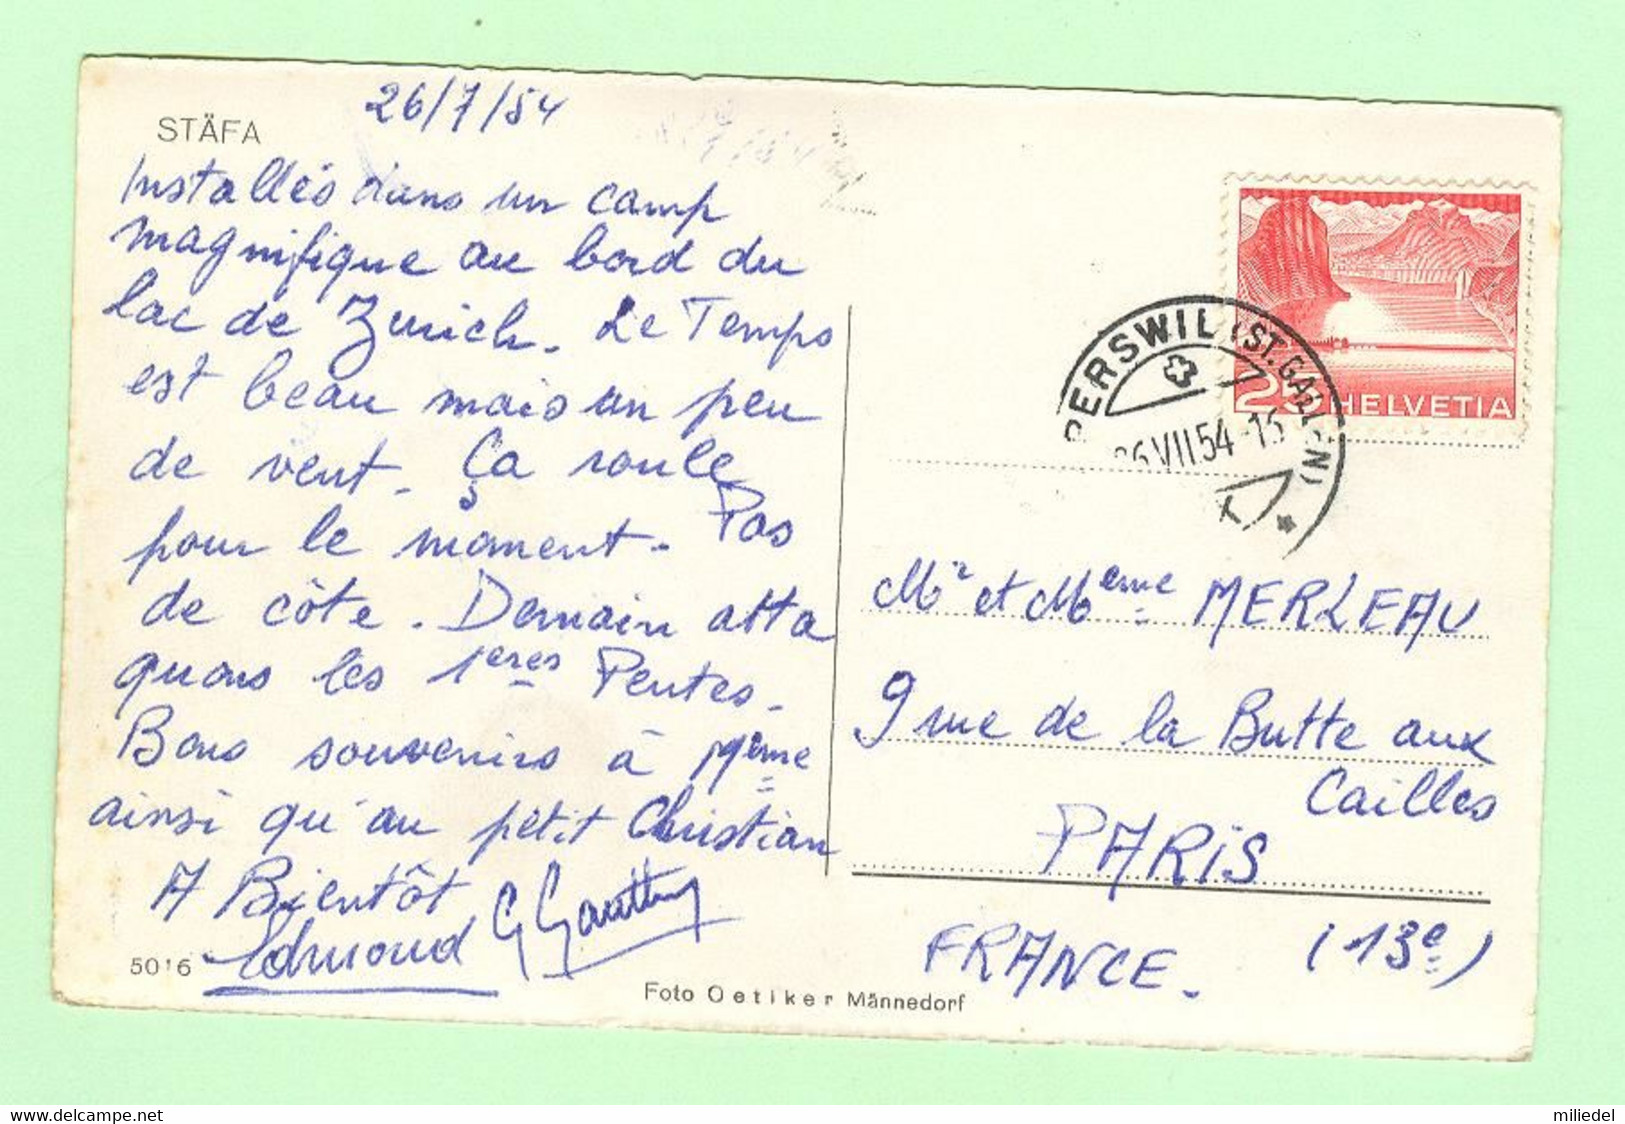 STÄFA
26/7/54
Installés dans un camp
magnifique au bord du
lac de Zurich. Le Temps
est beau mais un peu
de vent. Ça roule
pour le moment. Pas
de côte. Demain atta
quons les 1eres Pentes.
Bons souvenirs à Meme
ainsi qu'au petit Christian
A Bientôt
Edmond
5016
Foto Oetiker Männedorf
HELVETIA
25
PERSWIL (ST. GALLEN)
26 VII 54 - 15
Mr et Meme MERLEAU
9 rue de la Butte aux
Cailles
PARIS
FRANCE. (13e)
miliedel
https://www.delcampe.net